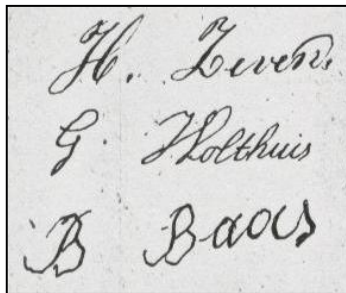 H. Zeven.
G. Holthuis
B Baas